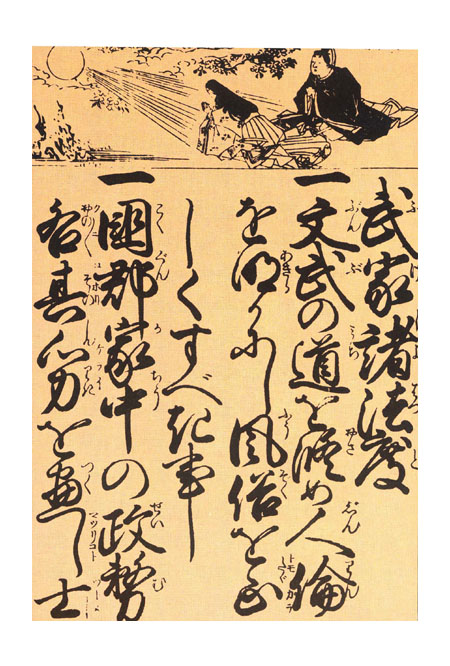 武家諸法度
一文武の道を脩め人倫
を明かにし風俗を正
しくすべき事
一國郡家中の政務
各其心力を盡し士